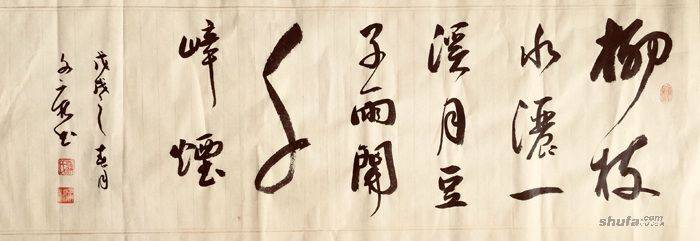 柳枝
水灑一
溪月豆
子雨開
千
嶂煙
戊戌之春月
shufa.com